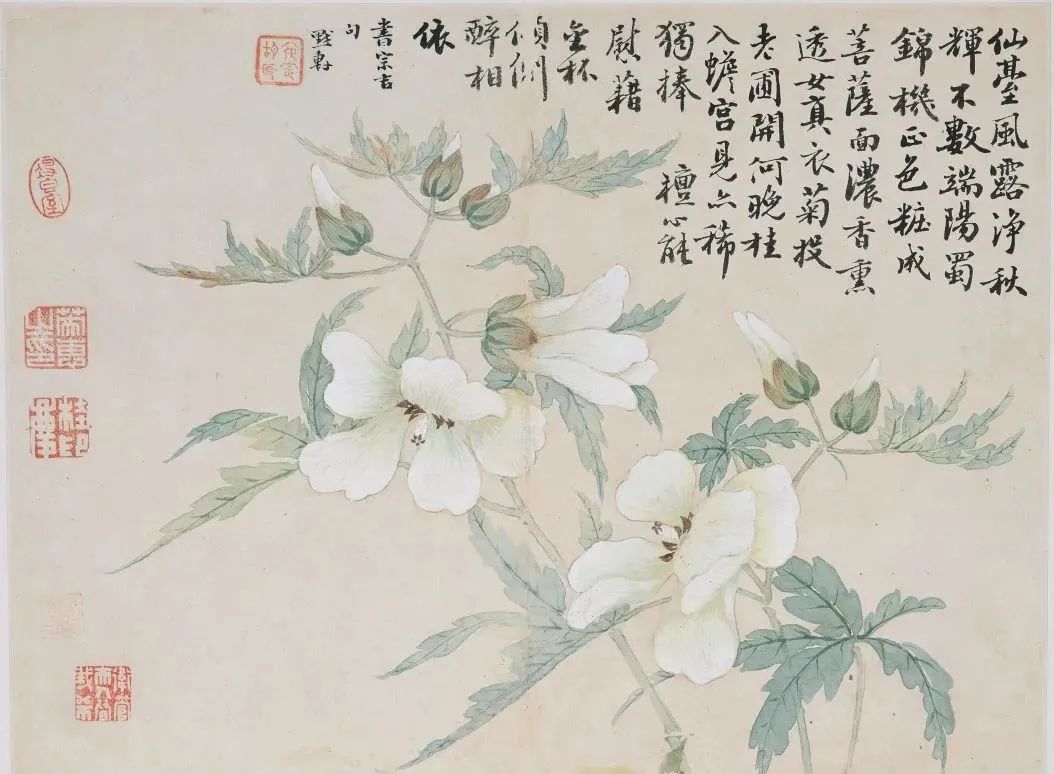 仙臺風露淨秋
輝不數端陽蜀
錦機正色粧成
菩薩面濃香熏
透女真衣菊投
老圃開何晚桂
入蟾宮見亦稀
獨捧檀心能
慰藉
金杯
傾倒
醉相
依
書宗吉
句